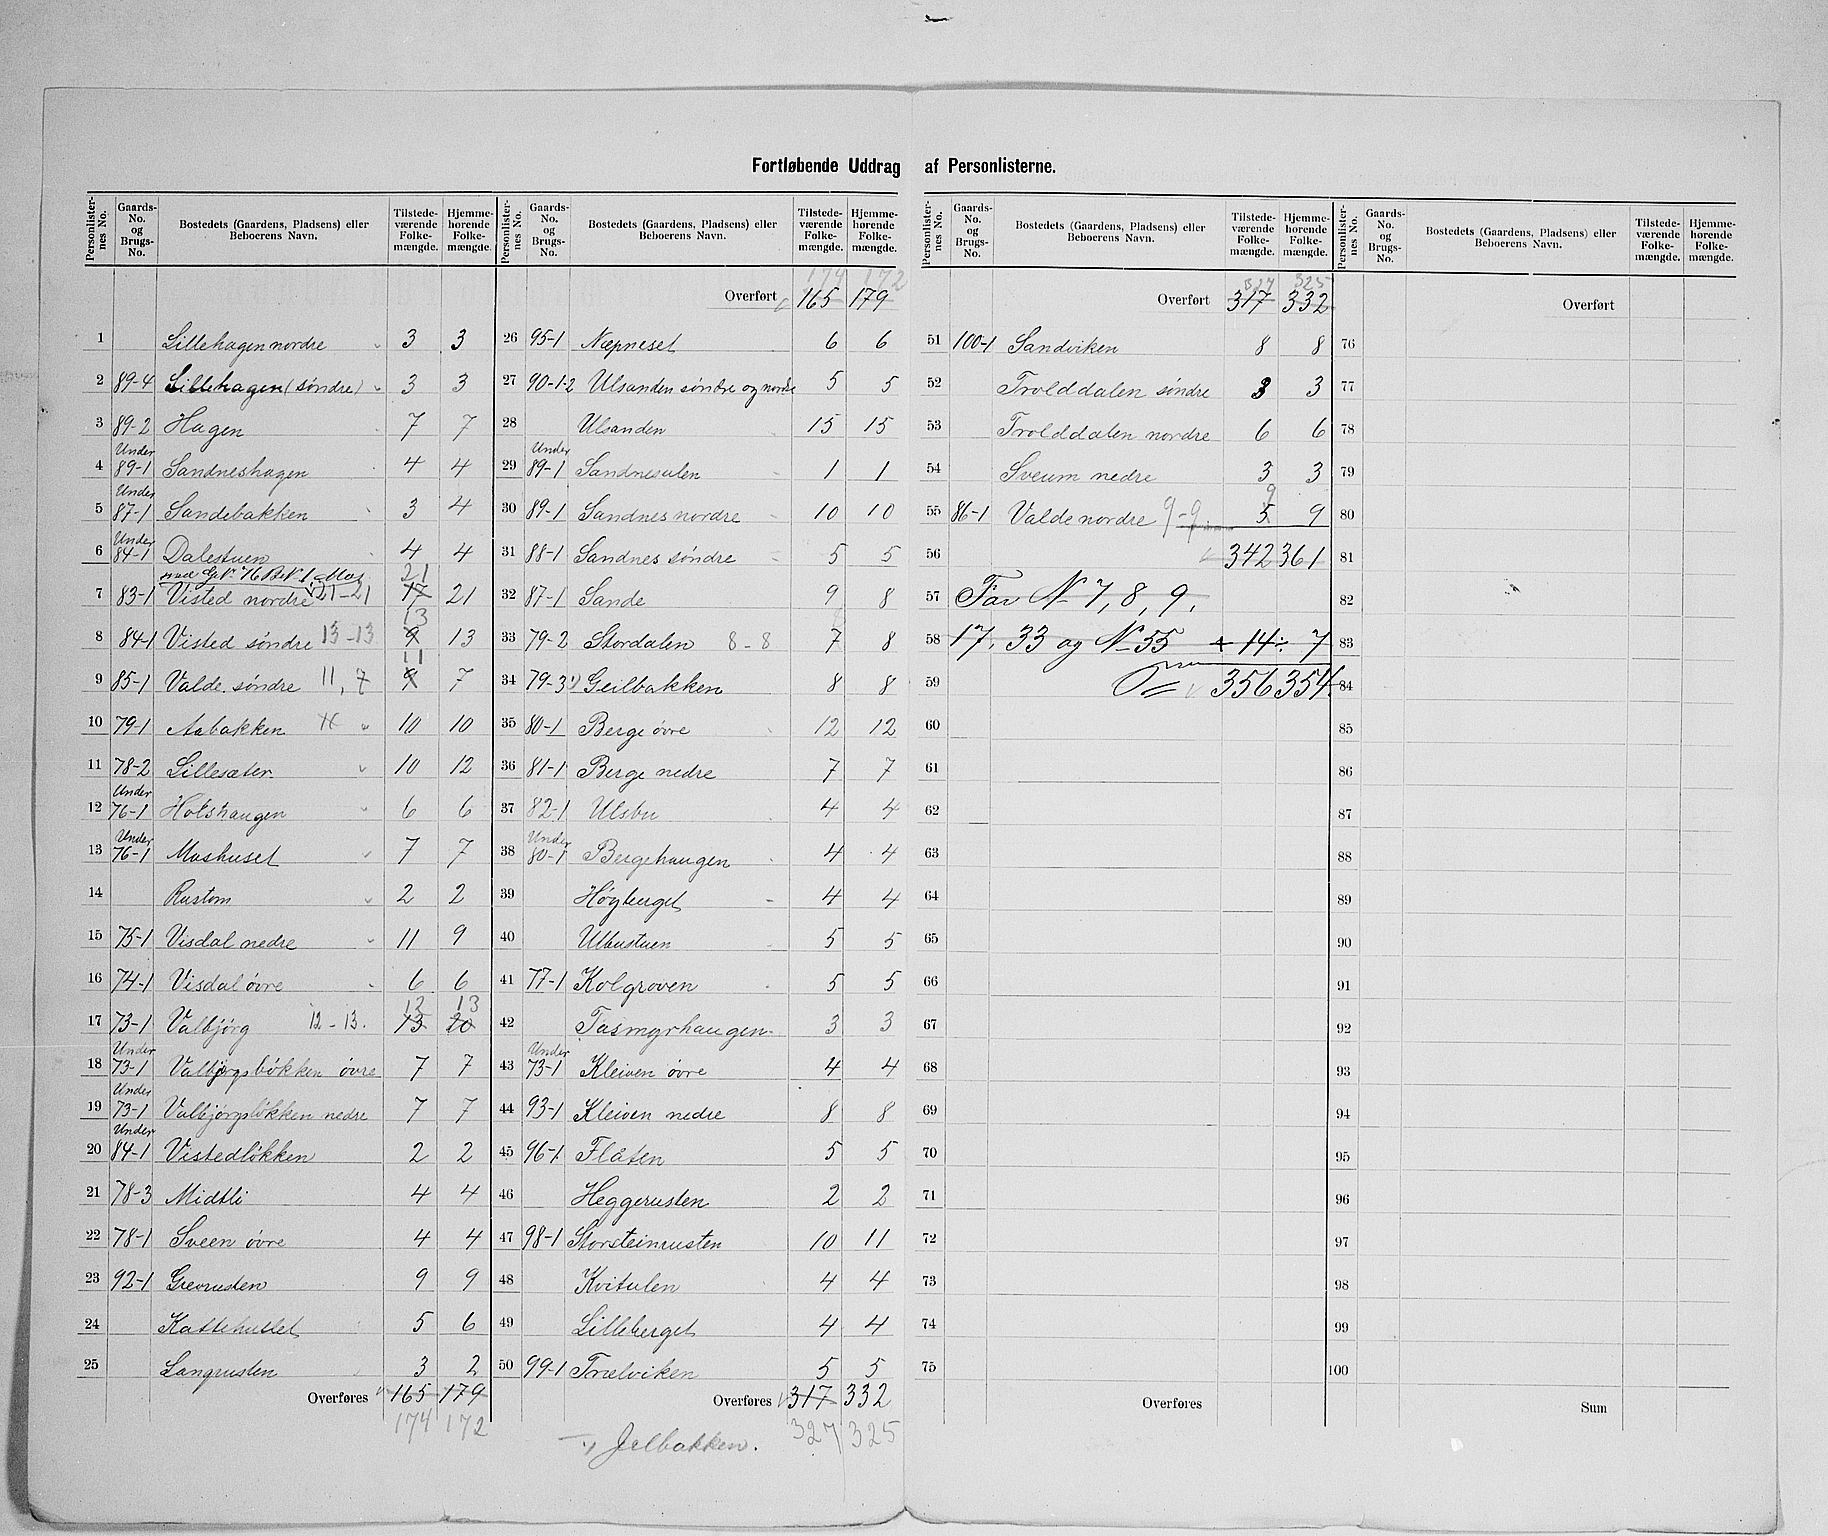 Fortløbende Uddrag af Personlisterne.
Personlister-nes No. Gaards-No. og Brugs-No. Bostedets (Gaardens, Pladsens) eller Beboerens Navn. Tilstede-værende Folke-mængde. Hjemme-hørende Folke-mængde.
1 Lillehagen nordre 3 3
2 89-4 Lillehagen (søndre) 3 3
3 89-2 Hagen 7 7
4 Under 89-1 Sandneshagen 4 4
5 Under 87-1 Sandebakken 3 4
6 Under 84-1 Dalestuen 4 4
7 83-1 Visted nordre 21-21 17 21 21
8 84-1 Visted søndre 13-13 9 13 13
9 85-1 Valde søndre 11, 7 9 11 7
10 79-1 Aabakken 10 10
11 78-2 Lillesæter 10 12
12 Under 76-1 Holshaugen 6 6
13 Under 76-1 Moshuset 7 7
14 Rustom 2 2
15 75-1 Visdal nedre 11 9
16 74-1 Visdal øvre 6 6
17 73-1 Valbjörg 12-13. 13 12 20 13
18 Under 73-1 Valbjörgsløkken øvre 7 7
19 Under 73-1 Valbjörgsløkken nedre 7 7
20 Under 84-1 Vistedløkken 2 2
21 78-3 Midtli 4 4
22 78-1 Sveen øvre 4 4
23 92-1 Grevrusten 9 9
24 Kattehullet 5 6
25 Langrusten 3 2
Overføres 165 179
174 172
Personlister-nes No. Gaards-No. og Brugs-No. Bostedets (Gaardens, Pladsens) eller Beboerens Navn. Tilstede-værende Folke-mængde. Hjemme-hørende Folke-mængde.
174 172
Overført 165 179
26 95-1 Næpneset 6 6
27 90-1-2 Ulsanden søndre og nordre 5 5
28 Ulsanden 15 15
29 Under 89-1 Sandnesulen 1 1
30 89-1 Sandnes nordre 10 10
31 88-1 Sandnes søndre 5 5
32 87-1 Sande 9 8
33 79-2 Stordalen 8-8 7 8
34 79-3 1) Geilbakken 8 8
35 80-1 Berge øvre 12 12
36 81-1 Berge nedre 7 7
37 82-1 Ulsbu 4 4
38 Under 80-1 Bergehaugen 4 4
39 Høgberget 4 4
40 Ulbustuen 5 5
41 77-1 Kolgroven 5 5
42 Tasmyrhaugen 3 3
43 Under 73-1 Kleiven øvre 4 4
44 93-1 Kleiven nedre 8 8
45 96-1 Flaten 5 5
46 Heggerusten 2 2
47 98-1 Storsteinrusten 10 11
48 Kvitulen 4 4
49 Lilleberget 4 4
50 99-1 Trælviken 5 5
Overføres 317 332
327 325
1) Jelbakken.
Personlister-nes No. Gaards-No. og Brugs-No. Bostedets (Gaardens, Pladsens) eller Beboerens Navn. Tilstede-værende Folke-mængde. Hjemme-hørende Folke-mængde.
327 325
Overført 317 332
51 100-1 Sandviken 8 8
52 Trolddalen søndre 3 3
53 Trolddalen nordre 6 6
54 Sveum nedre 3 3
55 86-1 Valde nordre 9-9 5 9 9
56 342 361
57 For No 7, 8, 9,
58 17, 33 og No 55 + 14 ÷ 7
59 356 354
60
61
62
63
64
65
66
67
68
69
70
71
72
73
74
75
Overføres
Personlister-nes No. Gaards-No. og Brugs-No. Bostedets (Gaardens, Pladsens) eller Beboerens Navn. Tilstede-værende Folke-mængde. Hjemme-hørende Folke-mængde.
Overført
76
77
78
79
80
81
82
83
84
85
86
87
88
89
90
91
92
93
94
95
96
97
98
99
100
Sum